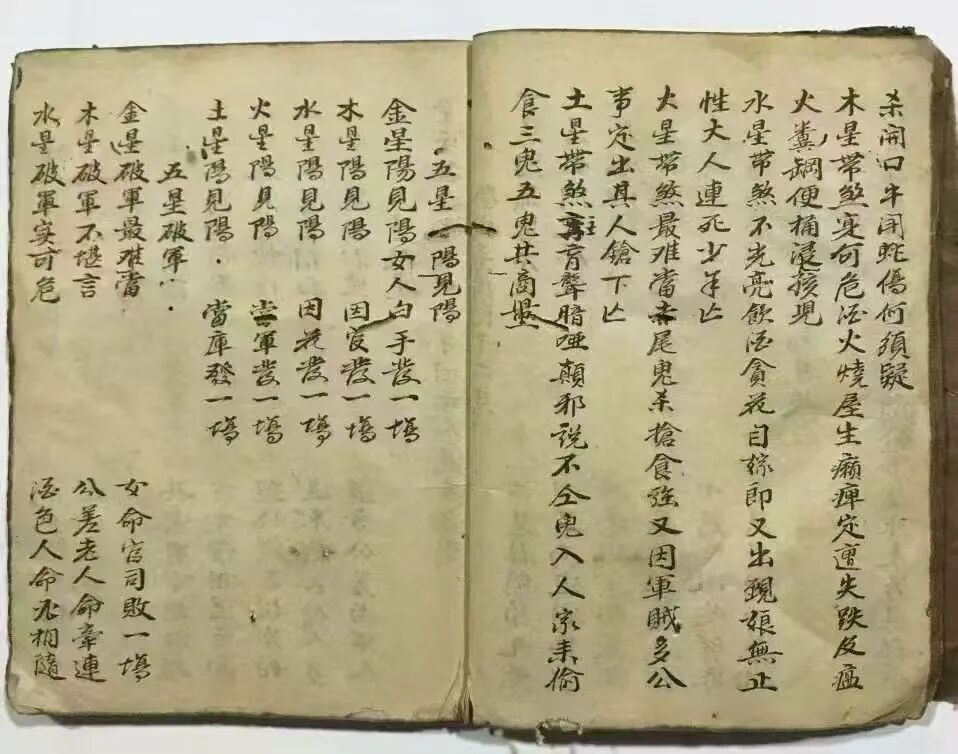 杀開口牛開蛇傷何須疑
木星帶煞身何危酒火燒屋生癩痺定遭失跌反瘟
火糞缸便桶浸孩現
水星帶煞不光亮飲酒貪花自縊即又出現娘無止
性大人連死少年亡
火星帶煞最难當赤尾鬼杀搶食强又因軍賊多公
事定出其人鎗下亡
土星帶煞主盲聾暗啞顛邪說不仝鬼入人家來偷
食三鬼五鬼共商量
五星陽見陽
金星陽見陽女人白手發一塲
木星陽見陽 因官發一塲
水星陽見陽 因花發一塲
火星陽見陽 當軍發一塲
土星陽見陽 當庫發一塲
五星破軍
金星破軍最难當 女命官司敗一塲
木星破軍不堪言 公差老人命牽連
水星破軍实可危 酒色人命相隨